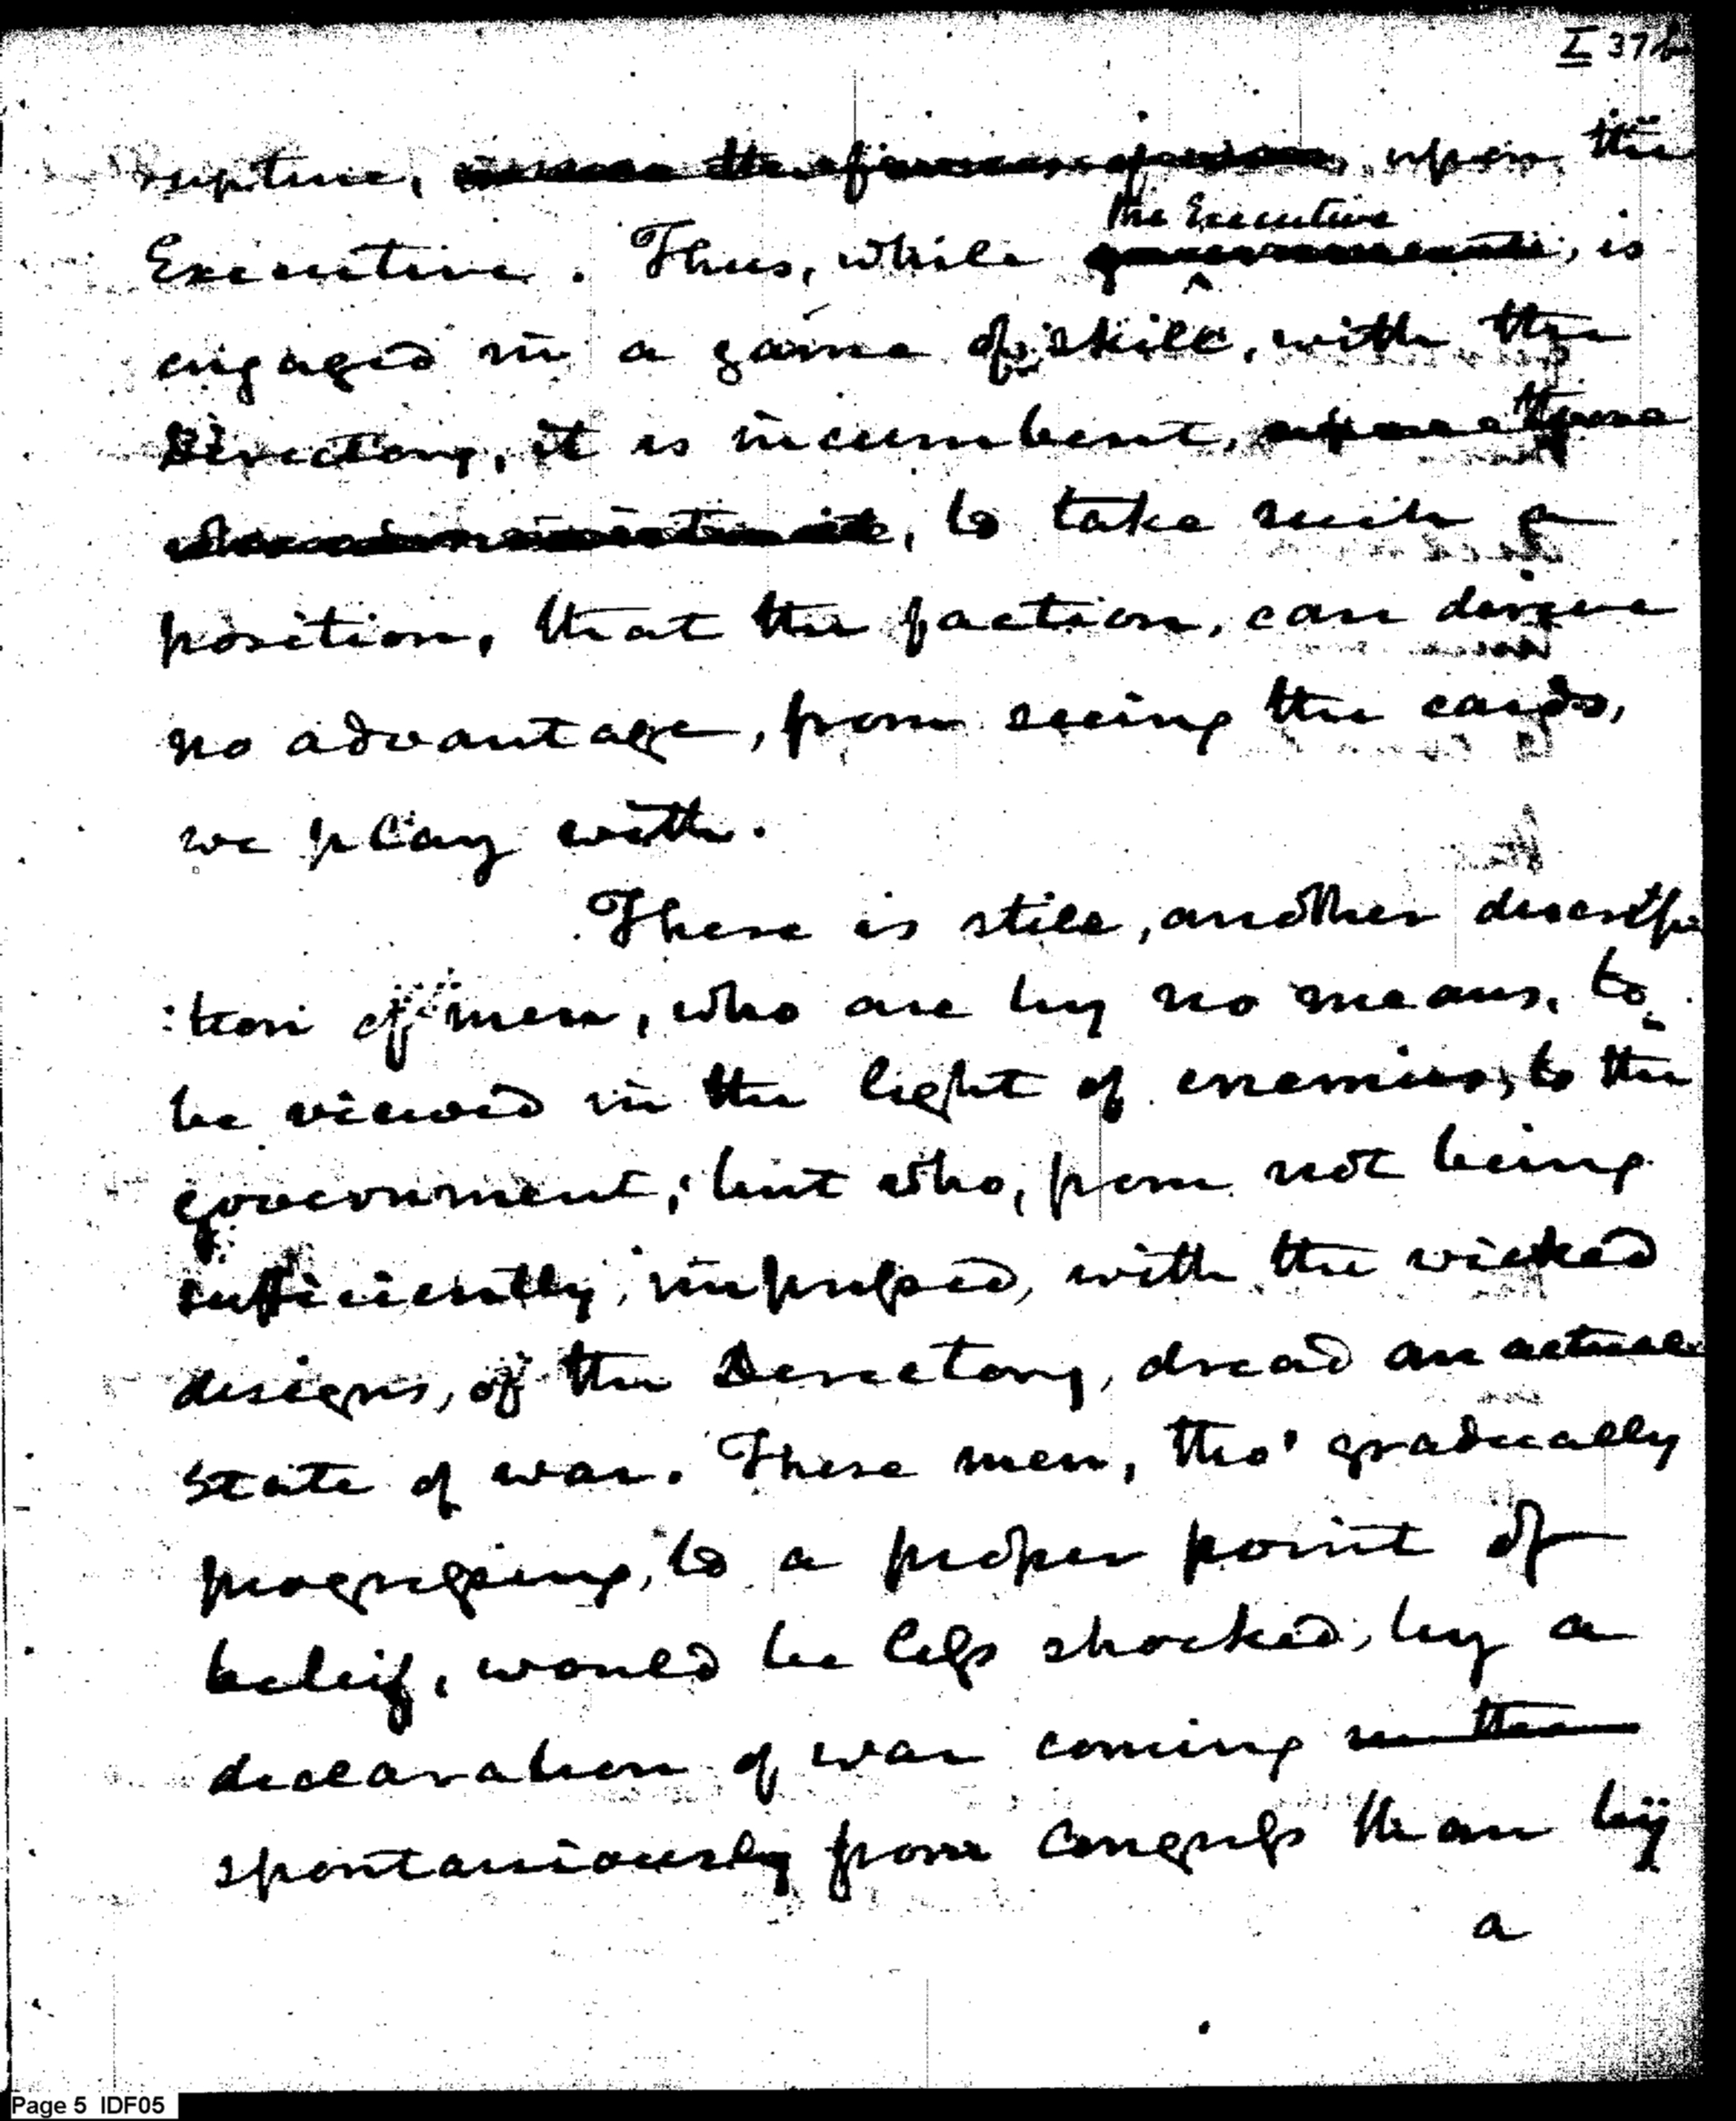 I 37b
rupture, upon the
the Executive
Executive. Thus, while government, is
engaged in a game of skill, with the
Directory, it is incumbent, upon those
who administer it, to take such a
position, that the faction, can derive
no advantage, from seeing the cards,
we play with.
There is still, another descrip
:tion of men, who are by no means, to
be viewed in the light of enemies, to the
government; but who, from not being
sufficiently, impressed, with the wicked
designs, of the Directory, dread an actual
State of war. These men, tho' gradually
progressing, to a proper point of
beleif, would be less shocked, by a
declaration of war coming in the
spontaniously from Congress than by
a
Page 5 IDF05